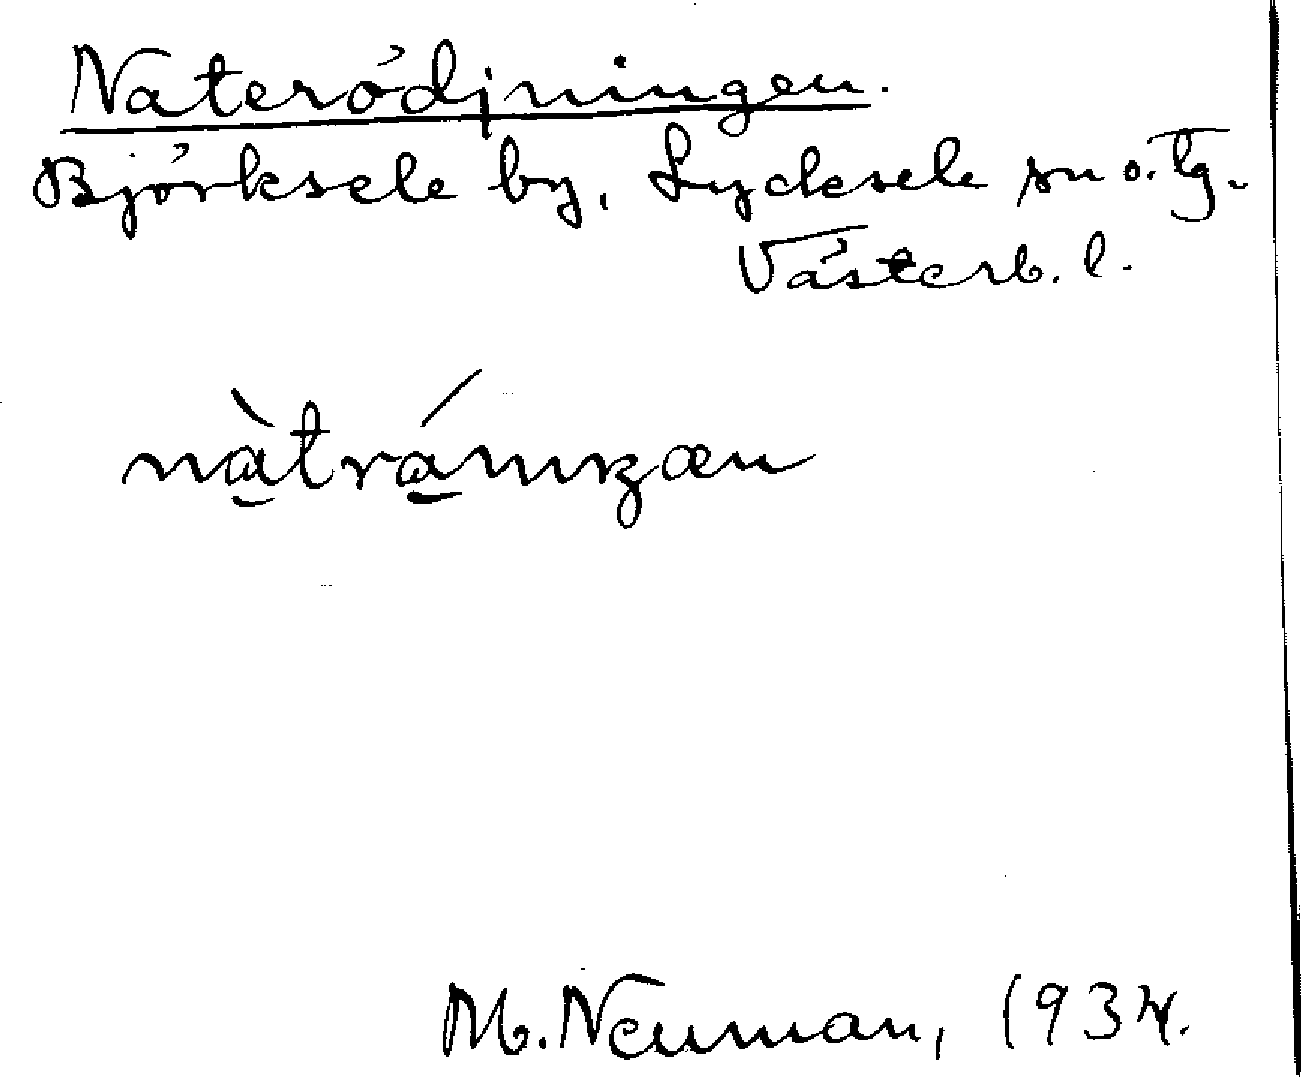 Naterödjningen.
Björksele by, Lycksele sn o. tg.
Västerb. l.
M. Neuman, 1934.